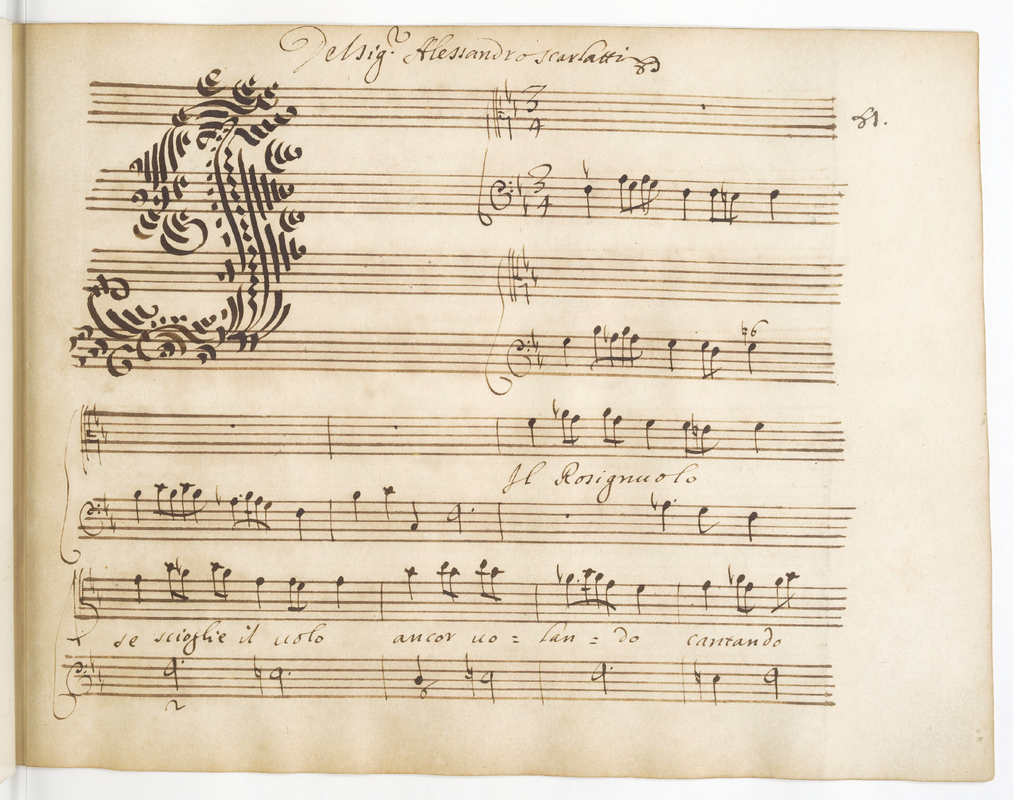 Del Sig.r Alessandro Scarlatti
81.
3
4
3
4
♮6
Il Rosignuolo
se scioglie il uolo ancor uo = lan = do cantando
6
2